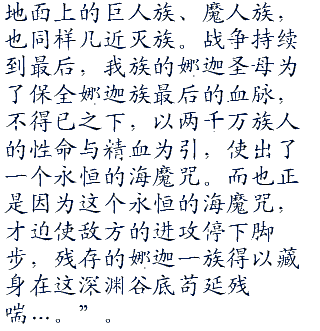 地面上的巨人族、魔人族，
也同样几近灭族。战争持续
到最后，我族的娜迦圣母为
了保全娜迦族最后的血脉，
不得已之下，以两千万族人
的性命与精血为引，使出了
一个永恒的海魔咒。而也正
是因为这个永恒的海魔咒，
才迫使敌方的进攻停下脚
步，残存的娜迦一族得以藏
身在这深渊谷底苟延残
喘…。”。